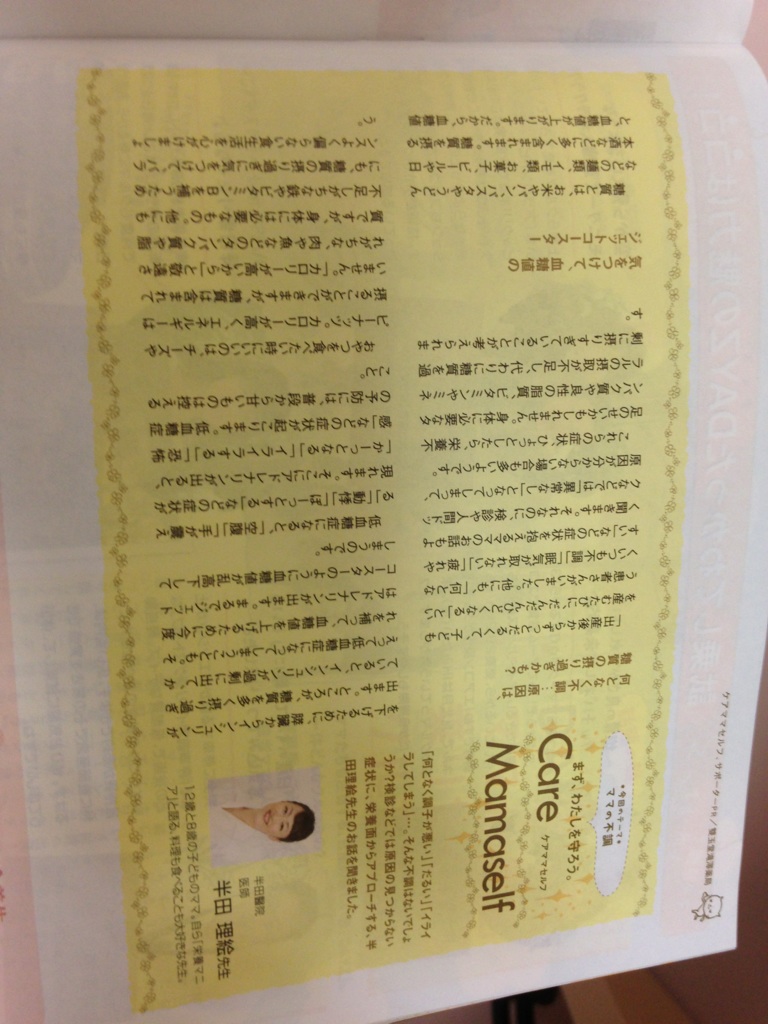 *今回のテーマ*
ママの不調
まず、わたしを守ろう。
Care ケアママセルフ
Mamaself
「何となく調子が悪い」「だるい」「イライ
ラしてしまう」…。そんな不調はないでしょ
うか?検診などでは原因の見つからない
症状に、栄養面からアプローチする、半
田理絵先生のお話を聞きました。
半田醫院
医師
半田 理絵先生
12歳と8歳の子どものママ。自ら「栄養マニ
ア」と語る、料理も食べることも大好きな先生。
何となく不調…原因は、
糖質の摂り過ぎかも?
「出産後からずっとだるくて、子ども
を産むたびに、だんだんひどくなる」とい
う患者さんがいました。他にも、「何とな
くいつも不調」「眠気が取れない」「疲れや
すい」などの症状を抱えるママのお話もよ
く聞きます。それなのに、検診や人間ドッ
クなどでは「異常なし」となってしまって、
原因が分からない場合も多いようです。
これらの症状、ひょっとしたら、栄養不
足のせいかもしれません。身体に必要なタ
ンパク質や良性の脂質、ビタミンやミネ
ラルの摂取が不足し、代わりに糖質を過
剰に摂りすぎていることが考えられま
す。
気をつけて、血糖値の
ジェットコースター
糖質とは、お米やパン、パスタやうどん
などの麺類、イモ類、お菓子、ビールや日
本酒などに多く含まれます。糖質を摂る
と、血糖値が上がります。だから、血糖値
を下げるために、膵臓からインシュリンが
出ます。ところが、糖質を多く摂り過ぎ
ていると、インシュリンが過剰に出て、か
えって低血糖症になってしまうことも。そ
れを補って、血糖値を上げるために今度
はアドレナリンが出ます。まるでジェット
コースターのように血糖値が乱高下して
しまうのです。
低血糖症になると、「空腹」「手が震え
る」「動悸」「ぼーっとする」などの症状が
現れます。そこにアドレナリンが出ると、
「かーっとなる」「イライラする」「恐怖
感」などの症状が起こります。低血糖症
の予防には、普段から甘いものは控える
こと。
おやつを食べたい時にいいのは、チーズや
ピーナッツ。カロリーが高く、エネルギーは
摂ることができますが、糖質は含まれて
いません。「カロリーが高いから」と敬遠さ
れがちな、肉や魚などのタンパク質や脂
質ですが、身体には必要なもの。他にも
不足しがちな鉄やビタミンBを補うため
にも、糖質の摂り過ぎに気をつけて、バラ
ンスよく偏らない食生活を心がけましょ
う。
ケアママセルフ、サポーター